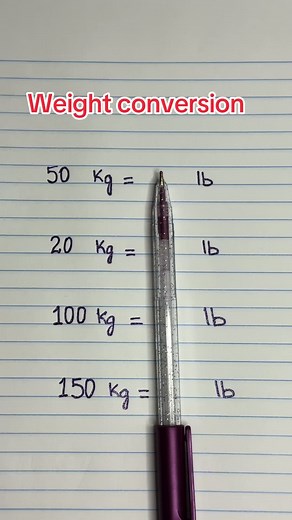 Weight conversion
50 Kg = lb
20 Kg = lb
100 Kg = lb
150 Kg = lb